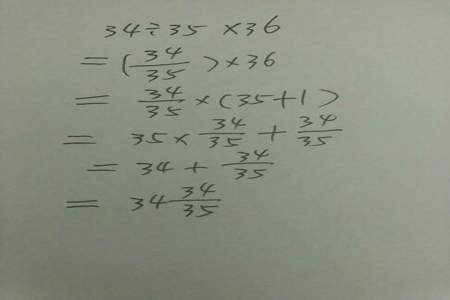 34÷35 ×36
= (34/35) ×36
= 34/35 × (35+1)
= 35 × 34/35 + 34/35
= 34 + 34/35
= 34 34/35